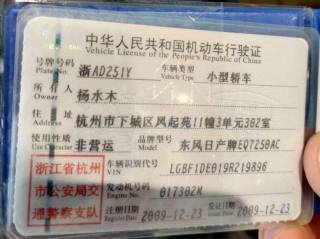 中华人民共和国机动车行驶证
Vehicle License of the People's Republic of China
号牌号码 浙AD251Y 车辆类型 小型轿车
Plate No. Vehicle Type
所有人 杨水木
Owner
住址 杭州市下城区风起苑11幢3单元302室
Address
使用性质 非营运 品牌型号 东风日产牌EQ7250AC
Use Character Model
浙江省杭州
市公安局交
通警察支队
车辆识别代号 LGBF1DE019R219896
VIN
发动机号码 017302M
Engine No.
注册日期 2009-12-23 发证日期 2009-12-23
Register Date Issue Date